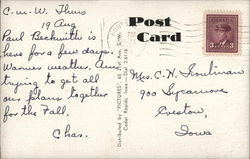 C-m-W. Thurs
19 Aug
Paul Beckwith is
here for a few days.
Warmer weather. Am
trying to get all
our plans together
for the Fall.
Chas.
Post
Card
Distributed by "PICTURES"
Cedar Rapids, Iowa
3 3
Mrs. C. H.
900 Sycamore
Iowa